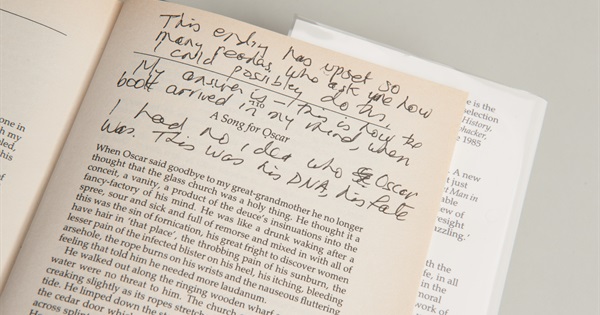 This ending has upset so
many readers, who ask me how
I could possibly do this.
My answer is – this is how the
book arrived in my mind, when
A Song for Oscar
I had no idea who Oscar
was. This was his DNA, his fate
When Oscar said goodbye to my great-grandmother he no longer
thought that the glass church was a holy thing. He thought it a
conceit, a vanity, a product of the deuce's insinuations into the
fancy-factory of his mind. He was like a drunk waking after a
spree, sour and sick and full of remorse and mixed in with all of
this was the sin of fornication, his great fright to discover women
have hair in 'that place', the throbbing pain of his sunburn, the
lesser pain of the infected blister on his heel, his itching, bleeding
arsehole, the rope burns on his wrists and the nauseous fluttering
feeling that told him he needed more laudanum.
He walked out along the ringing wooden wharf
water were no threat to him. The church
creaking slightly as its ropes stretched
tide. He limped down the
the cedar door which
across
one in
h my
a
his
e is the
selection
History,
whacker,
1985
A new
t just
t Man in
table
ew of
resight
zzling.'
fe, in all
d in the
noral
work of